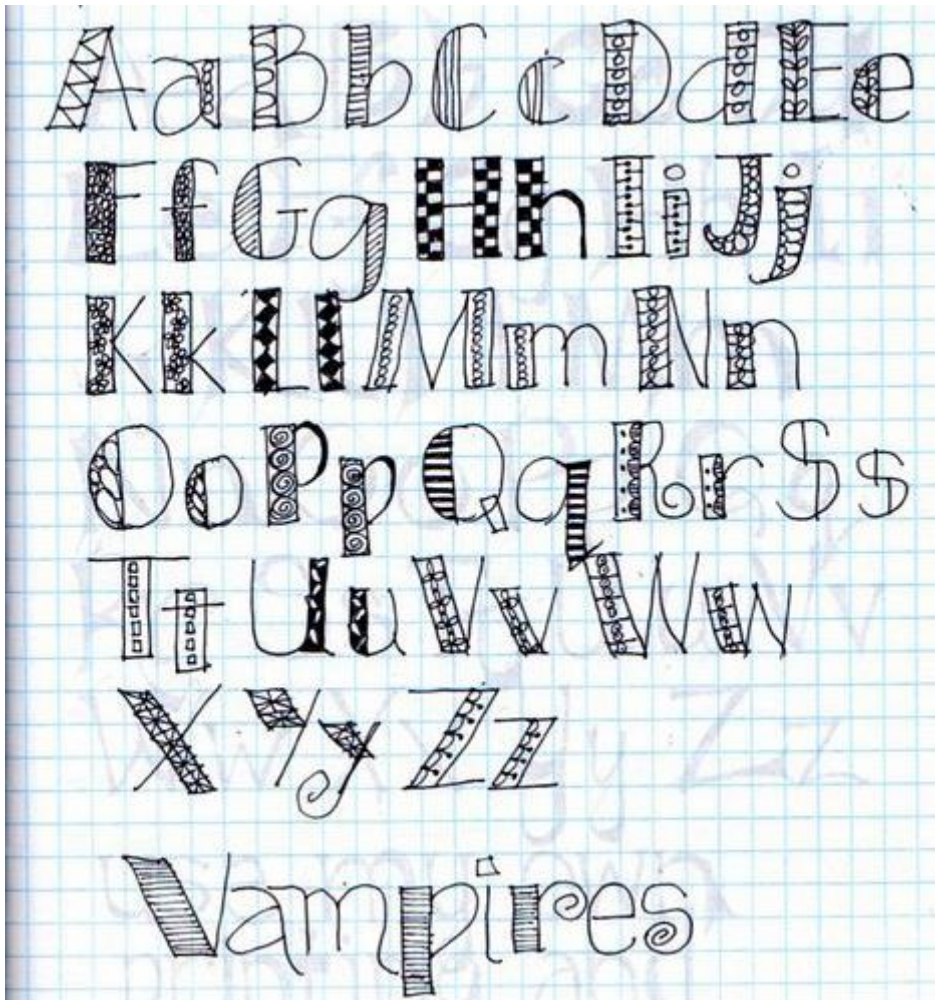 AaBbCcDdEe
FfGgHhIiJj
KkLlMmNn
OoPpQqRrSs
TtUuVvWw
XxYyZz
Vampires